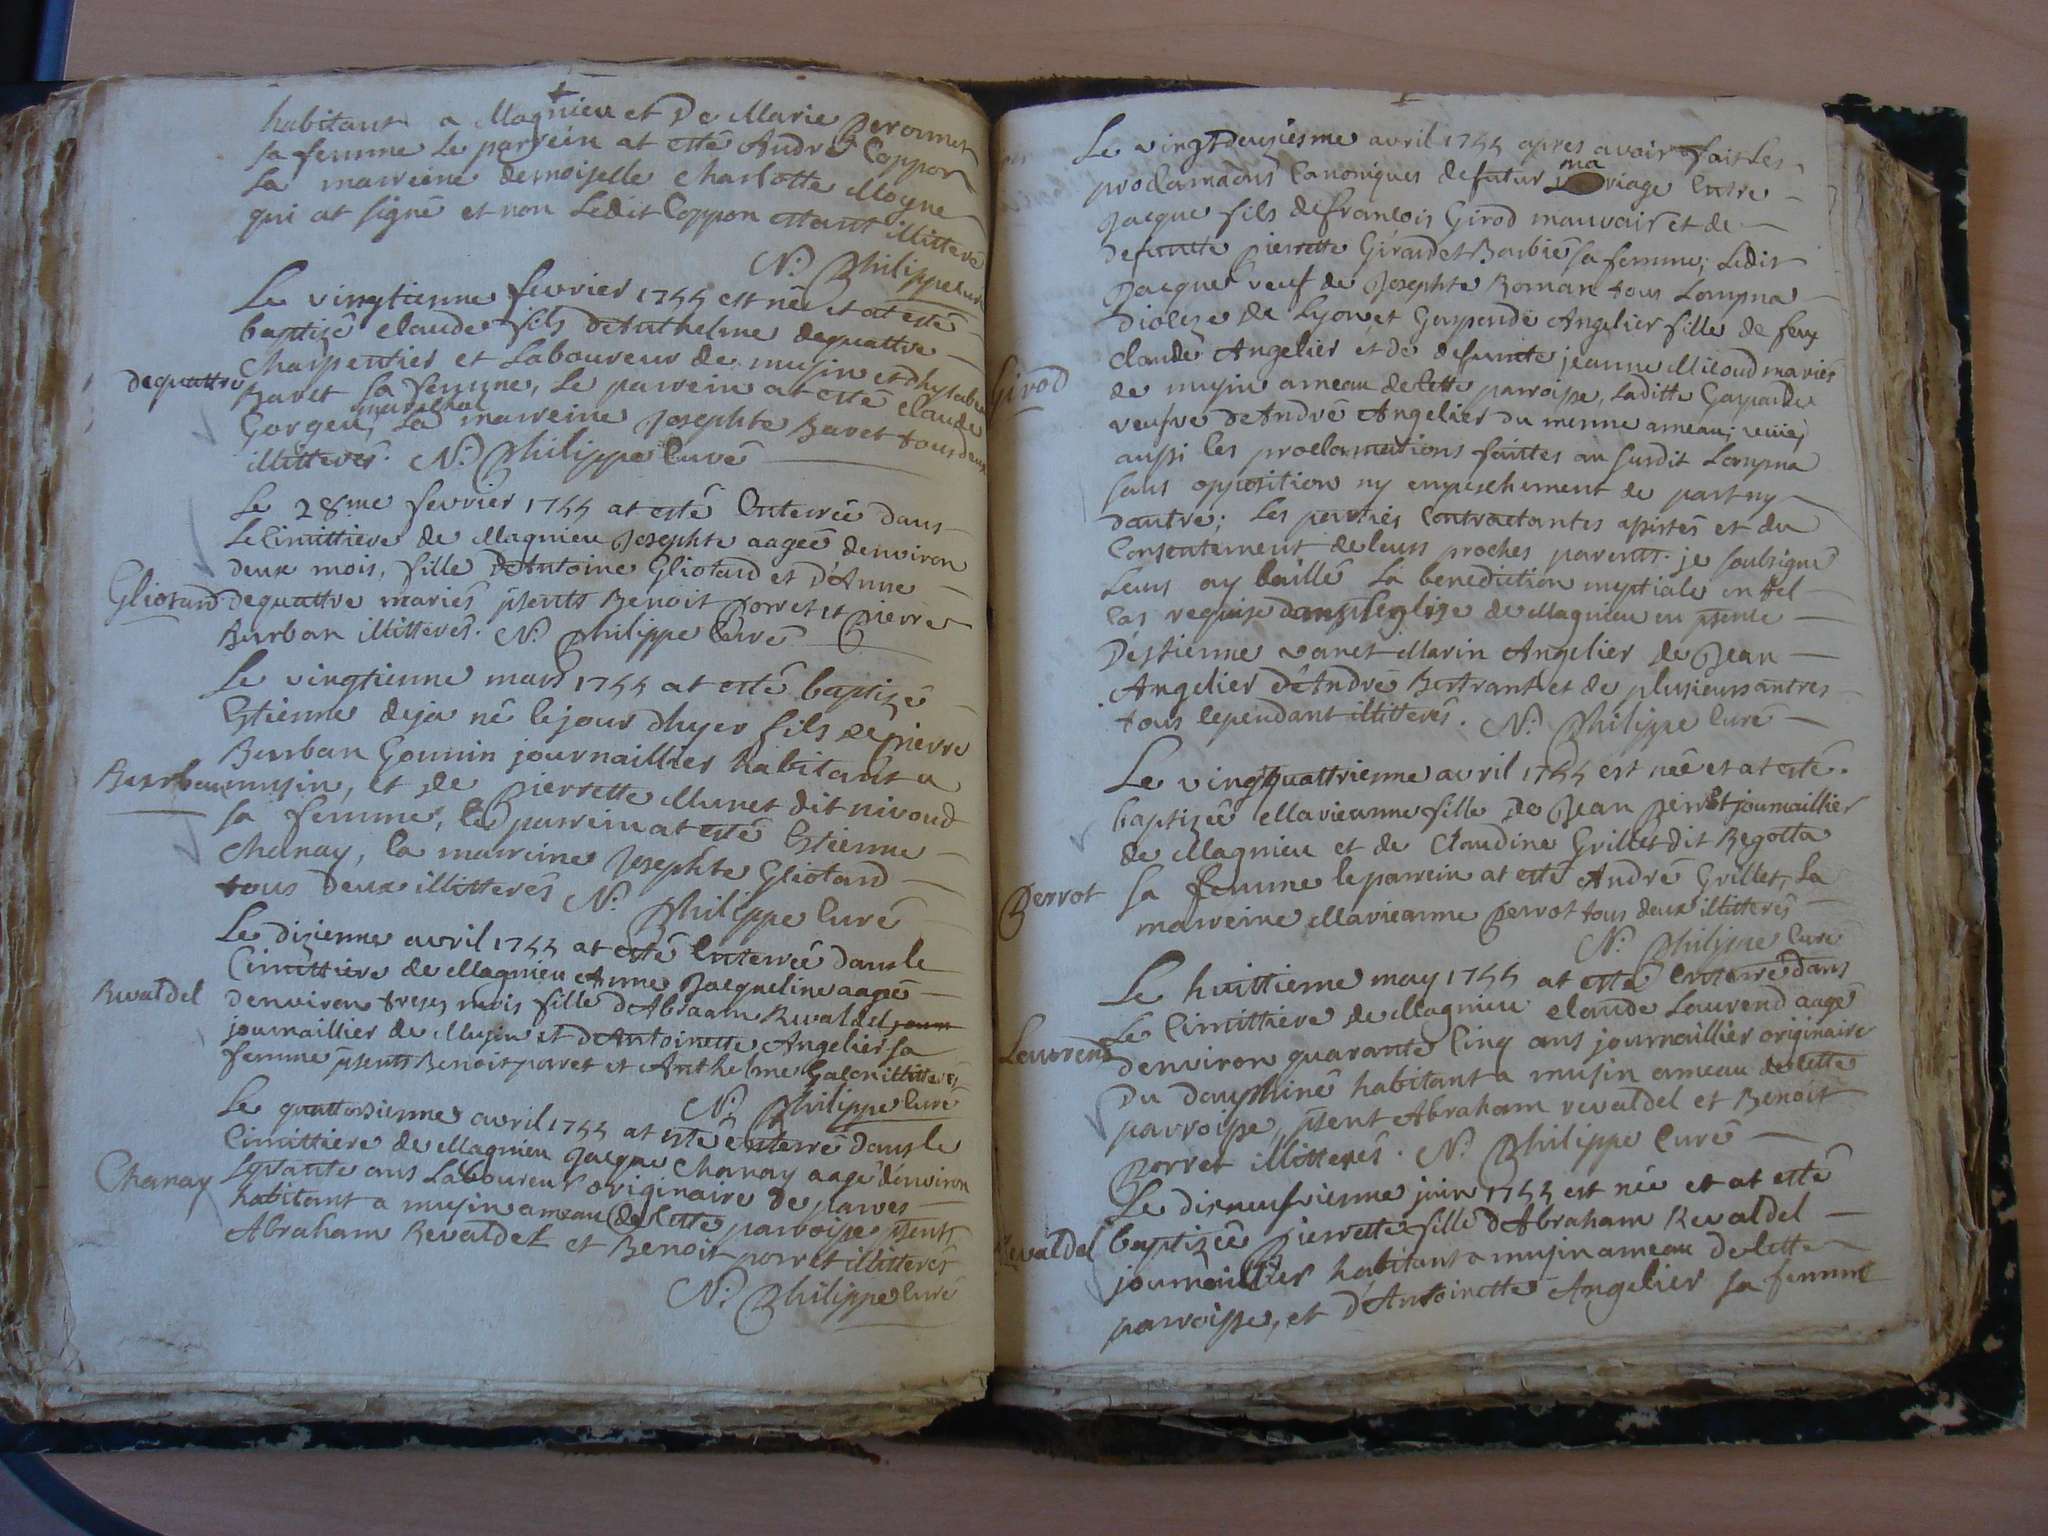 habitant a Magnieu et De Marie Peronnet
sa femme Le parrein at esté André Coppon
La marreine demoiselle Charlotte Moyne
qui at signé et non Ledit Coppon estant illitteré
N. Philippe curé
Le vingtienne fevrier 1755 est né et at esté
baptizé claude fils deAnthelme dequattre
Charpentier et Laboureur de musin et dhysabeau
dequattre
Ravet sa femme, Le parrein at esté claude
Gorgeu, La marreine Josephte Ravet tous deux
illitterés. N. Philippe Curé
Le 28.me fevrier 1755 at esté Enterrée dans
Le Cimittiere de Magnieu Josephte aagée denviron
deux mois, fille DeAntoine Gliotard et D'Anne
Gliotard
dequattre mariés psents Benoit Porret et Pierre
Burban illitterés. N. Philippe Curé
Le vingtienne mars 1755 at esté baptizé
Estienne deja né le jour dhyer fils de pierre
Burban Gonnin journaillier habitant a
Burban
musin, et de Pierrette Munet dit nivoud
sa femme, le parrein at esté Estienne
Chanay, la marreine Josephte Gliotard
tous deux illitterés N. Philippe Curé
Le dizienne avril 1755 at esté Enterrée dans le
Cimittiere de Magnieu Anne Jacqueline aagée
Revaldel
denviron treze mois fille d'Abraam Revaldel
journaillier de Musin et d'Antoinette Angelier sa
femme psents Benoit porret et Anthelme Galon illitterés
N. Philippe Curé
Le quattorzienne avril 1755 at esté enterré dans le
Cimittiere de Magnieu Jacque Chanay aagé d'environ
Chanay
septante ans Laboureur originaire de parves
habitant a musin ameau de cette parroisse psents
Abraham Revaldel et Benoit porret illitterés
N. Philippe Curé
Le vingtdeuziesme avril 1755 apres avoir fait Les
proclamaons Canoniques de futur mariage Entre
Jacque fils de francois Girod mauvais et de
defuncte Pierrette Girardet Barbié sa femme, Ledit
Jacque veuf de Josephte Roman tous Lompna
dioceze de Lyon et Gasparde Angelier fille de feux
claude Angelier et de defuncte jeanne Micoud mariés
Girod
de musin ameau de Cette parroisse, Laditte Gasparde
veufve de André Angelier du mesme ameau; veües
aussi les proclamations faittes au susdit Lompna
sans opposition ny empeschement de part ny
dautre; Les parties Contractantes assistés et du
Consentement de leurs proches parents. je soubsigné
Leurs ay baillé La benediction nuptiale en tel
Cas requise dans leglise de Magnieu en psence
D'estienne Marin Angelier de Jean
Angelier d'André Bertrant et de plusieurs autres
tous cependant illitterés. N. Philippe Curé
Le vingtquattrienne avril 1755 est née et at esté
baptizée Marieanne fille de Jean Perrot journaillier
de Magnieu et de Claudine Grillet dit Regotta
Perrot
sa femme le parrein at esté André Grillet, La
marreine Marieanne Perrot tous deux illitterés
N. Philippe Curé
Le huittienne may 1755 at esté Enterré dans
Le Cimittiere de Magnieu claude Laurend aagé
Laurend
denviron quarante Cinq ans journaillier originaire
Du dauphiné habitant a musin ameau de cette
parroisse, psent Abraham revaldel et Benoit
Porret illitterés. N. Philippe Curé
Le disneufvienne juin 1755 est née et at esté
Revaldel
baptizée Pierrette fille d'Abraham Revaldel
journaillier habitant a musin ameau de cette
parroisse, et d'Antoinette Angelier sa femme